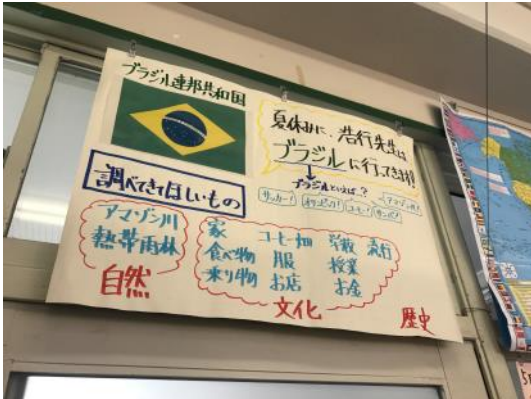 ブラジル連邦共和国
夏休みに、浩行先生は
ブラジルに行ってきます!
ブラジルといえば…?
サッカー!
オリンピック!
コーヒー!
サンバ!
アマゾン川!
調べてきてほしいもの
アマゾン川
熱帯雨林
自然
家 コーヒー畑 学校 流行
食べ物 服 授業
乗り物 お店 お金
文化
歴史